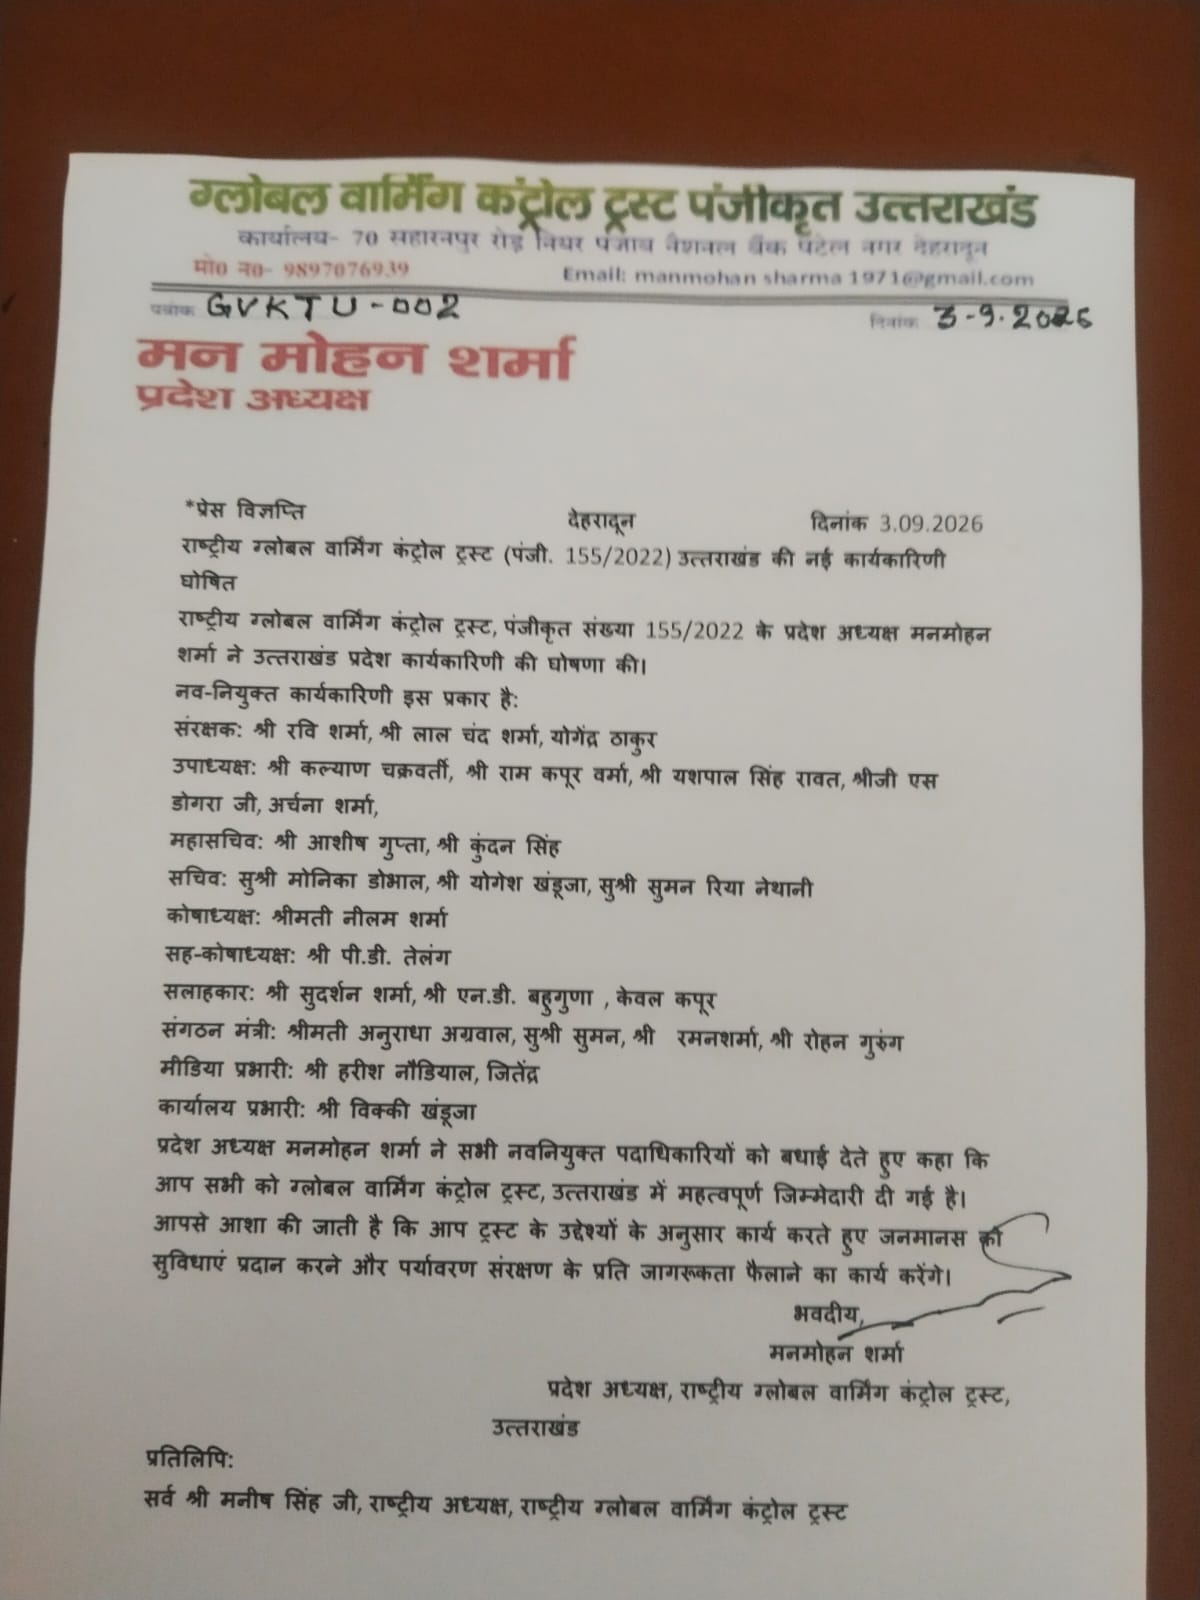 ग्लोबल वार्मिंग कंट्रोल ट्रस्ट पंजीकृत उत्तराखंड
कार्यालय- 70 सहारनपुर रोड़ नियर पंजाब नैशनल बैंक पटेल नगर देहरादून
मो0 न0- 9897076939 Email: manmohan sharma 1971@gmail.com
पत्रांक GVKTU-002 दिनांक 3-9.2026
मन मोहन शर्मा
प्रदेश अध्यक्ष
*प्रेस विज्ञप्ति देहरादून दिनांक 3.09.2026
राष्ट्रीय ग्लोबल वार्मिंग कंट्रोल ट्रस्ट (पंजी. 155/2022) उत्तराखंड की नई कार्यकारिणी
घोषित
राष्ट्रीय ग्लोबल वार्मिंग कंट्रोल ट्रस्ट, पंजीकृत संख्या 155/2022 के प्रदेश अध्यक्ष मनमोहन
शर्मा ने उत्तराखंड प्रदेश कार्यकारिणी की घोषणा की।
नव-नियुक्त कार्यकारिणी इस प्रकार है:
संरक्षक: श्री रवि शर्मा, श्री लाल चंद शर्मा, योगेंद्र ठाकुर
उपाध्यक्ष: श्री कल्याण चक्रवर्ती, श्री राम कपूर वर्मा, श्री यशपाल सिंह रावत, श्रीजी एस
डोगरा जी, अर्चना शर्मा,
महासचिव: श्री आशीष गुप्ता, श्री कुंदन सिंह
सचिव: सुश्री मोनिका डोभाल, श्री योगेश खंडूजा, सुश्री सुमन रिया नेथानी
कोषाध्यक्ष: श्रीमती नीलम शर्मा
सह-कोषाध्यक्ष: श्री पी.डी. तेलंग
सलाहकार: श्री सुदर्शन शर्मा, श्री एन.डी. बहुगुणा , केवल कपूर
संगठन मंत्री: श्रीमती अनुराधा अग्रवाल, सुश्री सुमन, श्री रमनशर्मा, श्री रोहन गुरुंग
मीडिया प्रभारी: श्री हरीश नौडियाल, जितेंद्र
कार्यालय प्रभारी: श्री विक्की खंडूजा
प्रदेश अध्यक्ष मनमोहन शर्मा ने सभी नवनियुक्त पदाधिकारियों को बधाई देते हुए कहा कि
आप सभी को ग्लोबल वार्मिंग कंट्रोल ट्रस्ट, उत्तराखंड में महत्वपूर्ण जिम्मेदारी दी गई है।
आपसे आशा की जाती है कि आप ट्रस्ट के उद्देश्यों के अनुसार कार्य करते हुए जनमानस को
सुविधाएं प्रदान करने और पर्यावरण संरक्षण के प्रति जागरूकता फैलाने का कार्य करेंगे।
भवदीय,
मनमोहन शर्मा
प्रदेश अध्यक्ष, राष्ट्रीय ग्लोबल वार्मिंग कंट्रोल ट्रस्ट,
उत्तराखंड
प्रतिलिपि:
सर्व श्री मनीष सिंह जी, राष्ट्रीय अध्यक्ष, राष्ट्रीय ग्लोबल वार्मिंग कंट्रोल ट्रस्ट